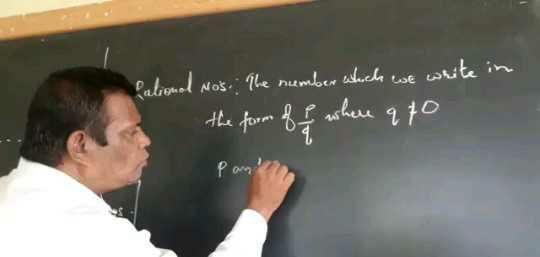 Rational Nos.: The number which we write in
the form of p/q where q ≠ 0
p an